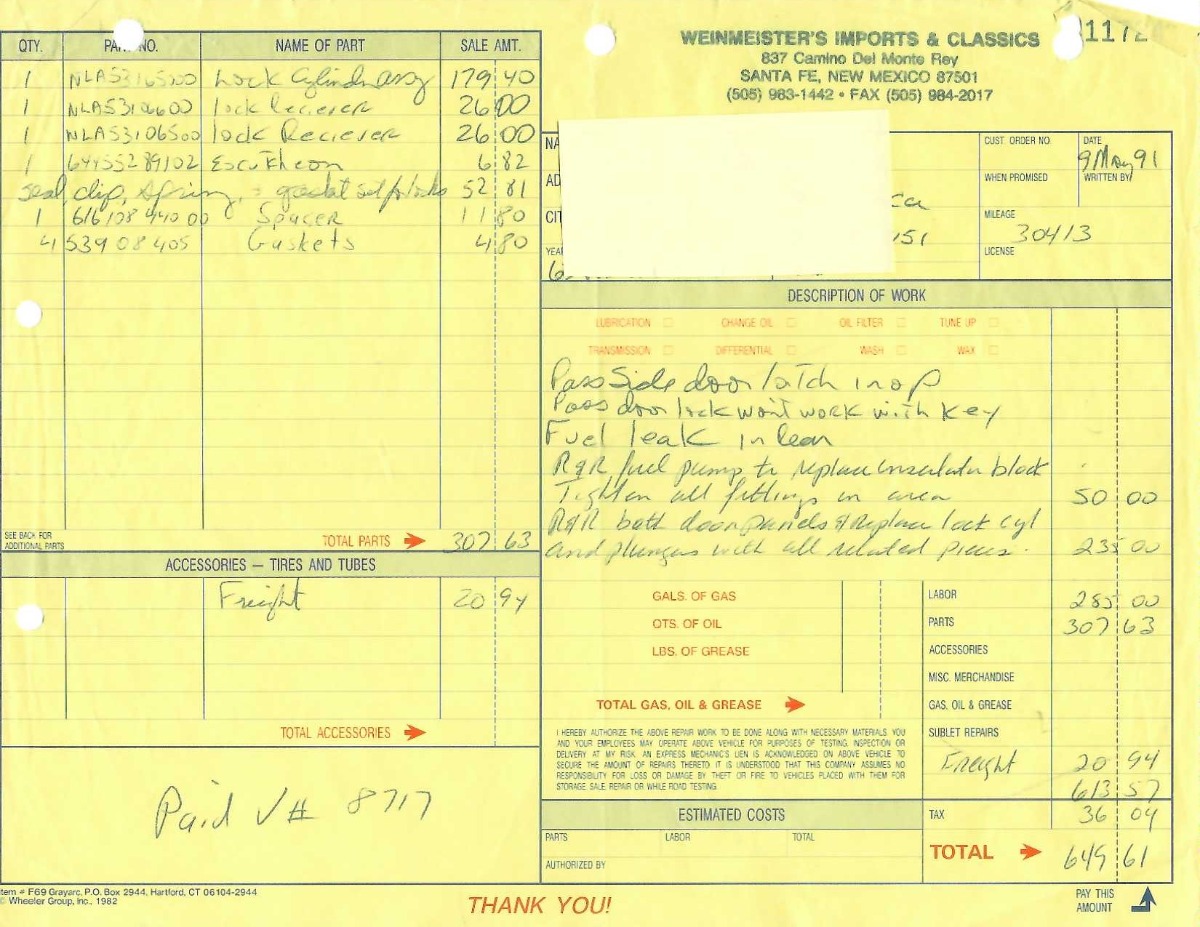 QTY. PART NO. NAME OF PART SALE AMT.
1 NLA5316500 Lock Cylinder assy 179 40
1 NLA53106600 lock Reciever 26 00
1 NLA53106500 lock Reciever 26 00
1 64455289102 Escutheon 6 82
seal, clip, spring, + gasket set for locks 52 81
1 616 108 440 00 Spacer 11 80
4 539 08 405 Gaskets 4 80
SEE BACK FOR
ADDITIONAL PARTS
TOTAL PARTS 307 63
ACCESSORIES — TIRES AND TUBES
Freight 20 94
TOTAL ACCESSORIES
Paid # 8717
Item # F69 Grayarc, P.O. Box 2944, Hartford, CT 06104-2944
© Wheeler Group, Inc., 1982
THANK YOU!
WEINMEISTER'S IMPORTS & CLASSICS
837 Camino Del Monte Rey
SANTA FE, NEW MEXICO 87501
(505) 983-1442 • FAX (505) 984-2017
NA
AD
CIT
YEA
Ca
151
CUST. ORDER NO.
DATE
9 May 91
WHEN PROMISED
WRITTEN BY
MILEAGE
30413
LICENSE
DESCRIPTION OF WORK
LUBRICATION CHANGE OIL OIL FILTER TUNE UP
TRANSMISSION DIFFERENTIAL WASH WAX
Pass Side door latch inop
Pass door lock won't work with key
Fuel leak in rear
R&R fuel pump to replace insulator block
Tighten all fittings in area 50 00
R&R both door panels & replace lock cyl
and plungers with all related pieces. 235 00
GALS. OF GAS
QTS. OF OIL
LBS. OF GREASE
TOTAL GAS, OIL & GREASE
LABOR 285 00
PARTS 307 63
ACCESSORIES
MISC. MERCHANDISE
GAS, OIL & GREASE
SUBLET REPAIRS
Freight 20 94
613 57
TAX 36 04
TOTAL 649 61
I HEREBY AUTHORIZE THE ABOVE REPAIR WORK TO BE DONE ALONG WITH NECESSARY MATERIALS. YOU
AND YOUR EMPLOYEES MAY OPERATE ABOVE VEHICLE FOR PURPOSES OF TESTING, INSPECTION OR
DELIVERY AT MY RISK. AN EXPRESS MECHANIC'S LIEN IS ACKNOWLEDGED ON ABOVE VEHICLE TO
SECURE THE AMOUNT OF REPAIRS THERETO. IT IS UNDERSTOOD THAT THIS COMPANY ASSUMES NO
RESPONSIBILITY FOR LOSS OR DAMAGE BY THEFT OR FIRE TO VEHICLES PLACED WITH THEM FOR
STORAGE SALE REPAIR OR WHILE ROAD TESTING.
ESTIMATED COSTS
PARTS LABOR TOTAL
AUTHORIZED BY
PAY THIS
AMOUNT